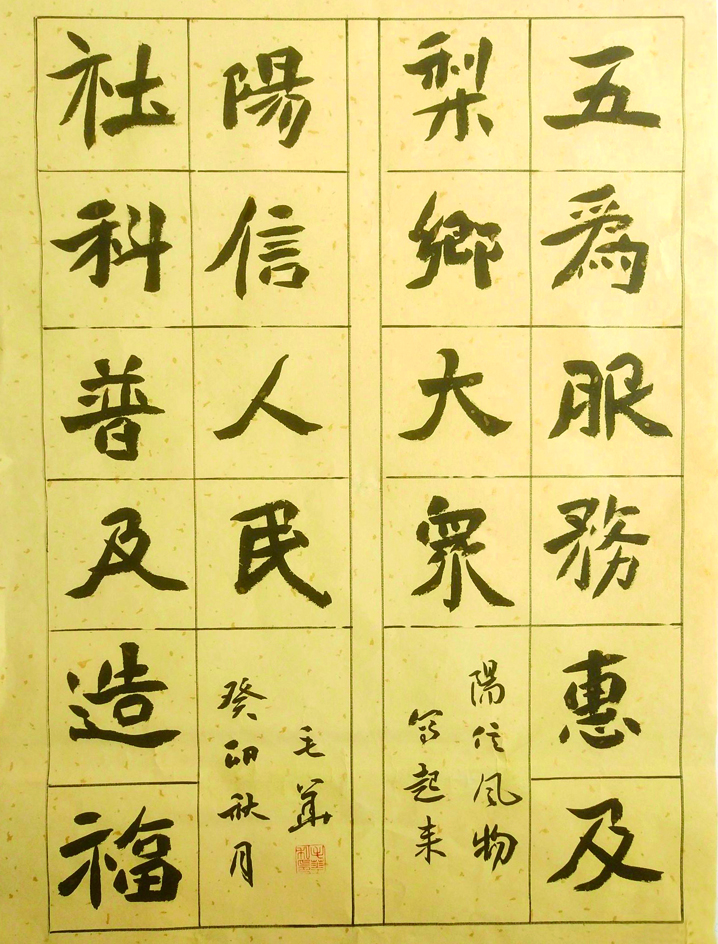 五為服務惠及
梨鄉大衆
陽信风物
写起来
社科普及造福
陽信人民
癸卯秋月
毛華